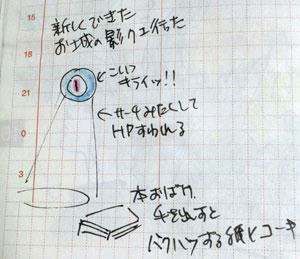 新しくできた
お城の影クエ行った
15
18
21
0
3
こいつ
キライッ!!
サーチみたくして
HPすわれる
本おばけ。
手を出すと
バクハツする紙とコーキ